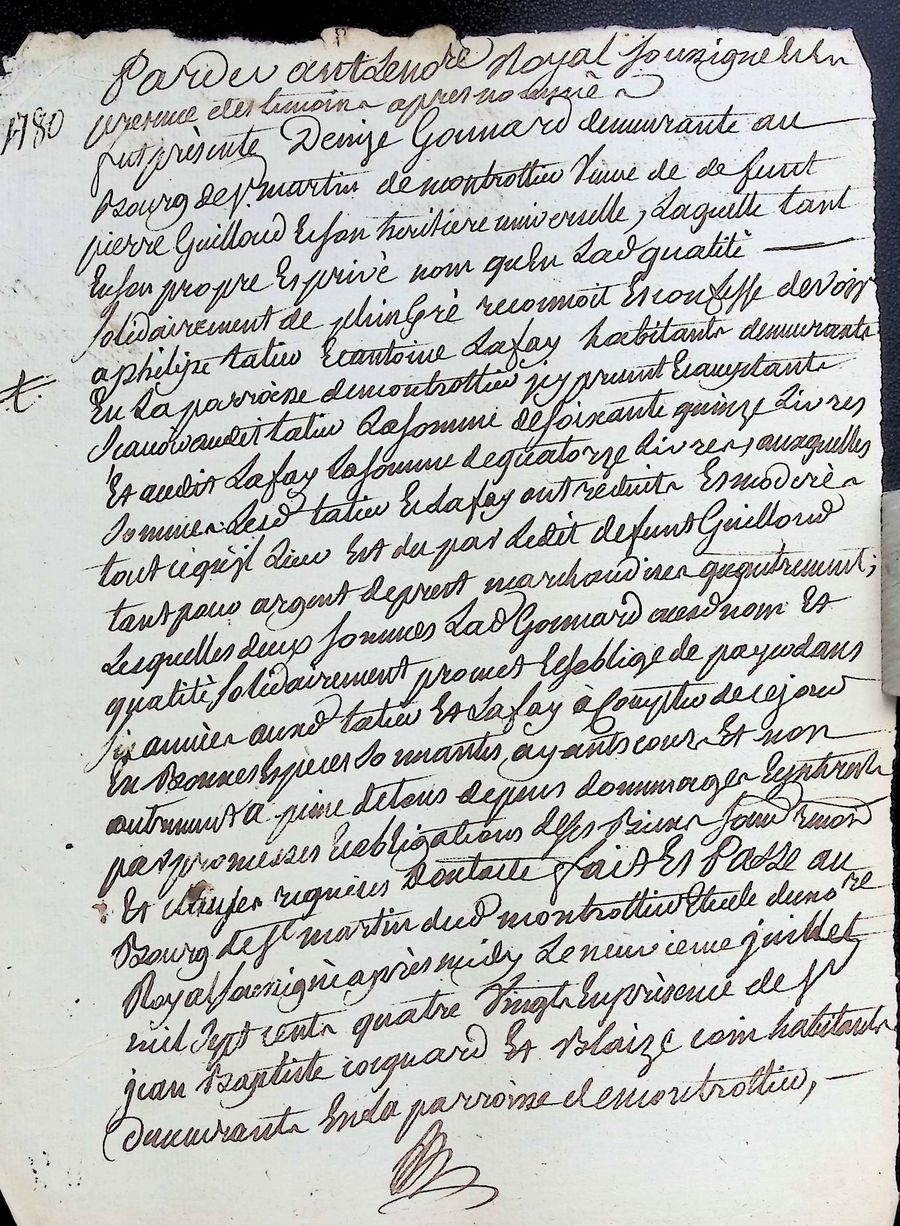 Pardevant Le no.re Royal soussigné et En
presence des temoins apres nommés
1780
fut présente Denize Gonnard demeurante au
Bourg de St. martin de montrottier Veuve de defunt
pierre Guilloud Et son heritiere universelle, Laquelle tant
En son propre Et privé nom qu'En Lad qualité
Solidairement de plein Gré reconnoit Et confesse devoir
a philipe tatieu Et antoine Lafay habitants demeurants
En La parroisse de montrottier icy present Et acceptants
Scavoir audit tatieu La somme de soixante quinze Livres
Et audit Lafay La somme de quatorze Livres, auxquelles
sommes Lesd tatieu Et Lafay ont reduit Et moderé
tout ce qu'il Lieu Est du par Ledit defunt Guilloud
tant pour argent de prest marchandises qu'autrement;
Lesquelles deux sommes Lad Gonnard auxd nom Et
qualité Solidairement promet Et soblige de payer dans
six années auxd tatieu Et Lafay à Compter de ce jour
En Bonnes Especes Sonnantes, ayants cours Et non
autrement a peine de tous depens dommages Et jnterests
par promesses Et obligations de ses Biens
Et clauses requises Dont acte fait Et Passé au
Bourg de St martin dud montrottier Etude du no.re
Royal soussigné après midy Le neuvieme juillet
mil sept cents quatre Vingts En présence de Sr
jean Baptiste coquard Et Blaize coin habitants
demeurants En La parroisse de montrottier,